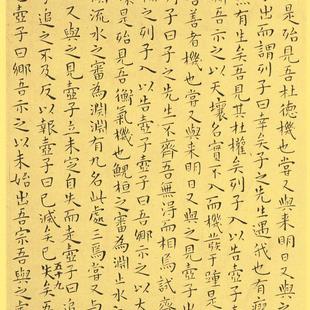 是殆見吾杜德機也嘗又與来明日又與之見
出而謂列子曰幸矣子之先生遇我也有瘳
然有生矣吾見其杜權矣列子入以告壺子
吾示之以天壤名實不入而機發于踵是
善者機也嘗又與来明日又與之見
曰子之先生不齊吾無得而相焉試齊
列子入以告壺子壺子曰吾鄉示之以太
是殆見吾衡氣機也鯢桓之審為淵止水之
流水之審為淵淵有九名此處三焉嘗又與
又與之見壺子立未定自失而走壺子曰追
追之不及反以報壺子曰已滅矣已失矣吾
五十九
壺子曰鄉吾示之以未始出吾宗吾與之